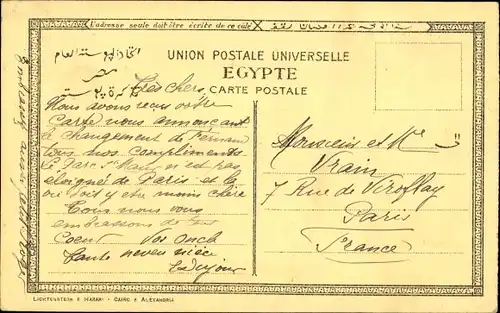 L'adresse seule doit être écrite de ce côté
UNION POSTALE UNIVERSELLE
EGYPTE
CARTE POSTALE
اتحاد بوسطة العام
مصر
تذكرة بوسته
Très chers,
Nous avons reçu votre
carte nous annonçant
le changement de
tous nos compliments
Le Parc St Maur n'est pas
éloigné de Paris et la
vie doit y être moins chère
Tous nous vous
embrassons de tout
Coeur Vos oncle
tante neveu nièce
Monsieur et Me
Vrain
7 Rue de Viroflay
Paris
France
LICHTENSTERN & HARARI - CAIRO & ALEXANDRIA